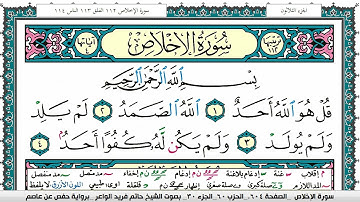 الجزء الثلاثون
سورة الإخلاص ١١٢ الفلق ١١٣ الناس ١١٤
ترتيبها ١١٢
سُورَةُ الإِخْلَاصِ
آياتها ٤
بِسْمِ ٱللَّهِ ٱلرَّحْمَٰنِ ٱلرَّحِيمِ
قُلْ هُوَ ٱللَّهُ أَحَدٌ ١ ٱللَّهُ ٱلصَّمَدُ ٢ لَمْ يَلِدْ
وَلَمْ يُولَدْ ٣ وَلَمْ يَكُن لَّهُۥ كُفُوًا أَحَدٌۢ ٤
سورة الإخلاص - الصفحة ٦٠٤ - الحزب ٦٠ - الجزء ٣٠ - بصوت الشيخ حاتم فريد الواعر - برواية حفص عن عاصم